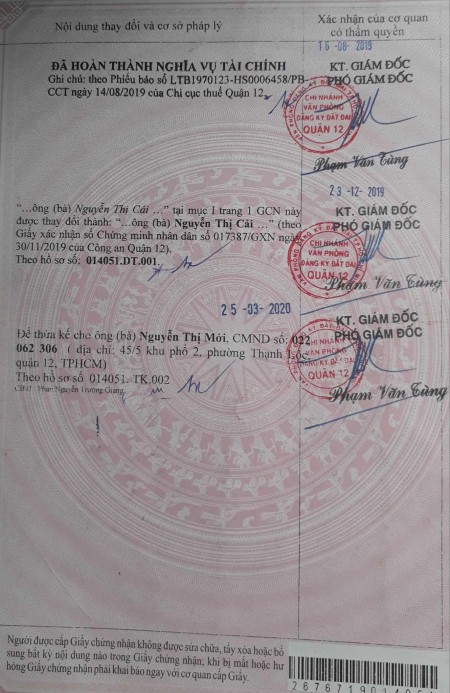 Nội dung thay đổi và cơ sở pháp lý
Xác nhận của cơ quan
có thẩm quyền
16-08-2019
ĐÃ HOÀN THÀNH NGHĨA VỤ TÀI CHÍNH
Ghi chú: theo Phiếu báo số LTB1970123-HS0006458/PB-
CCT ngày 14/08/2019 của Chi cục thuế Quận 12.
KT. GIÁM ĐỐC
PHÓ GIÁM ĐỐC
CHI NHÁNH
VĂN PHÒNG
ĐĂNG KÝ ĐẤT ĐAI
QUẬN 12
Phạm Văn Tùng
23-12-2019
"...ông (bà) Nguyễn Thị Cái ..." tại mục I trang 1 GCN này
được thay đổi thành: "...ông (bà) Nguyễn Thị Cải ..." (theo
Giấy xác nhận số Chứng minh nhân dân số 017387/GXN ngày
30/11/2019 của Công an Quận 12).
Theo hồ sơ số: 014051.DT.001
KT. GIÁM ĐỐC
PHÓ GIÁM ĐỐC
CHI NHÁNH
VĂN PHÒNG
ĐĂNG KÝ ĐẤT ĐAI
QUẬN 12
Phạm Văn Tùng
25-03-2020
Để thừa kế cho ông (bà) Nguyễn Thị Mới, CMND số: 022
062 306 ( địa chỉ: 45/5 khu phố 2, phường Thạnh Lộc
quận 12, TPHCM)
Theo hồ sơ số 014051.TK.002
Phan Nguyễn Trường Giang
KT. GIÁM ĐỐC
PHÓ GIÁM ĐỐC
CHI NHÁNH
VĂN PHÒNG
ĐĂNG KÝ ĐẤT ĐAI
QUẬN 12
Phạm Văn Tùng
Người được cấp Giấy chứng nhận không được sửa chữa, tẩy xóa hoặc bổ
sung bất kỳ nội dung nào trong Giấy chứng nhận; khi bị mất hoặc hư
hỏng Giấy chứng nhận phải khai báo ngay với cơ quan cấp Giấy.